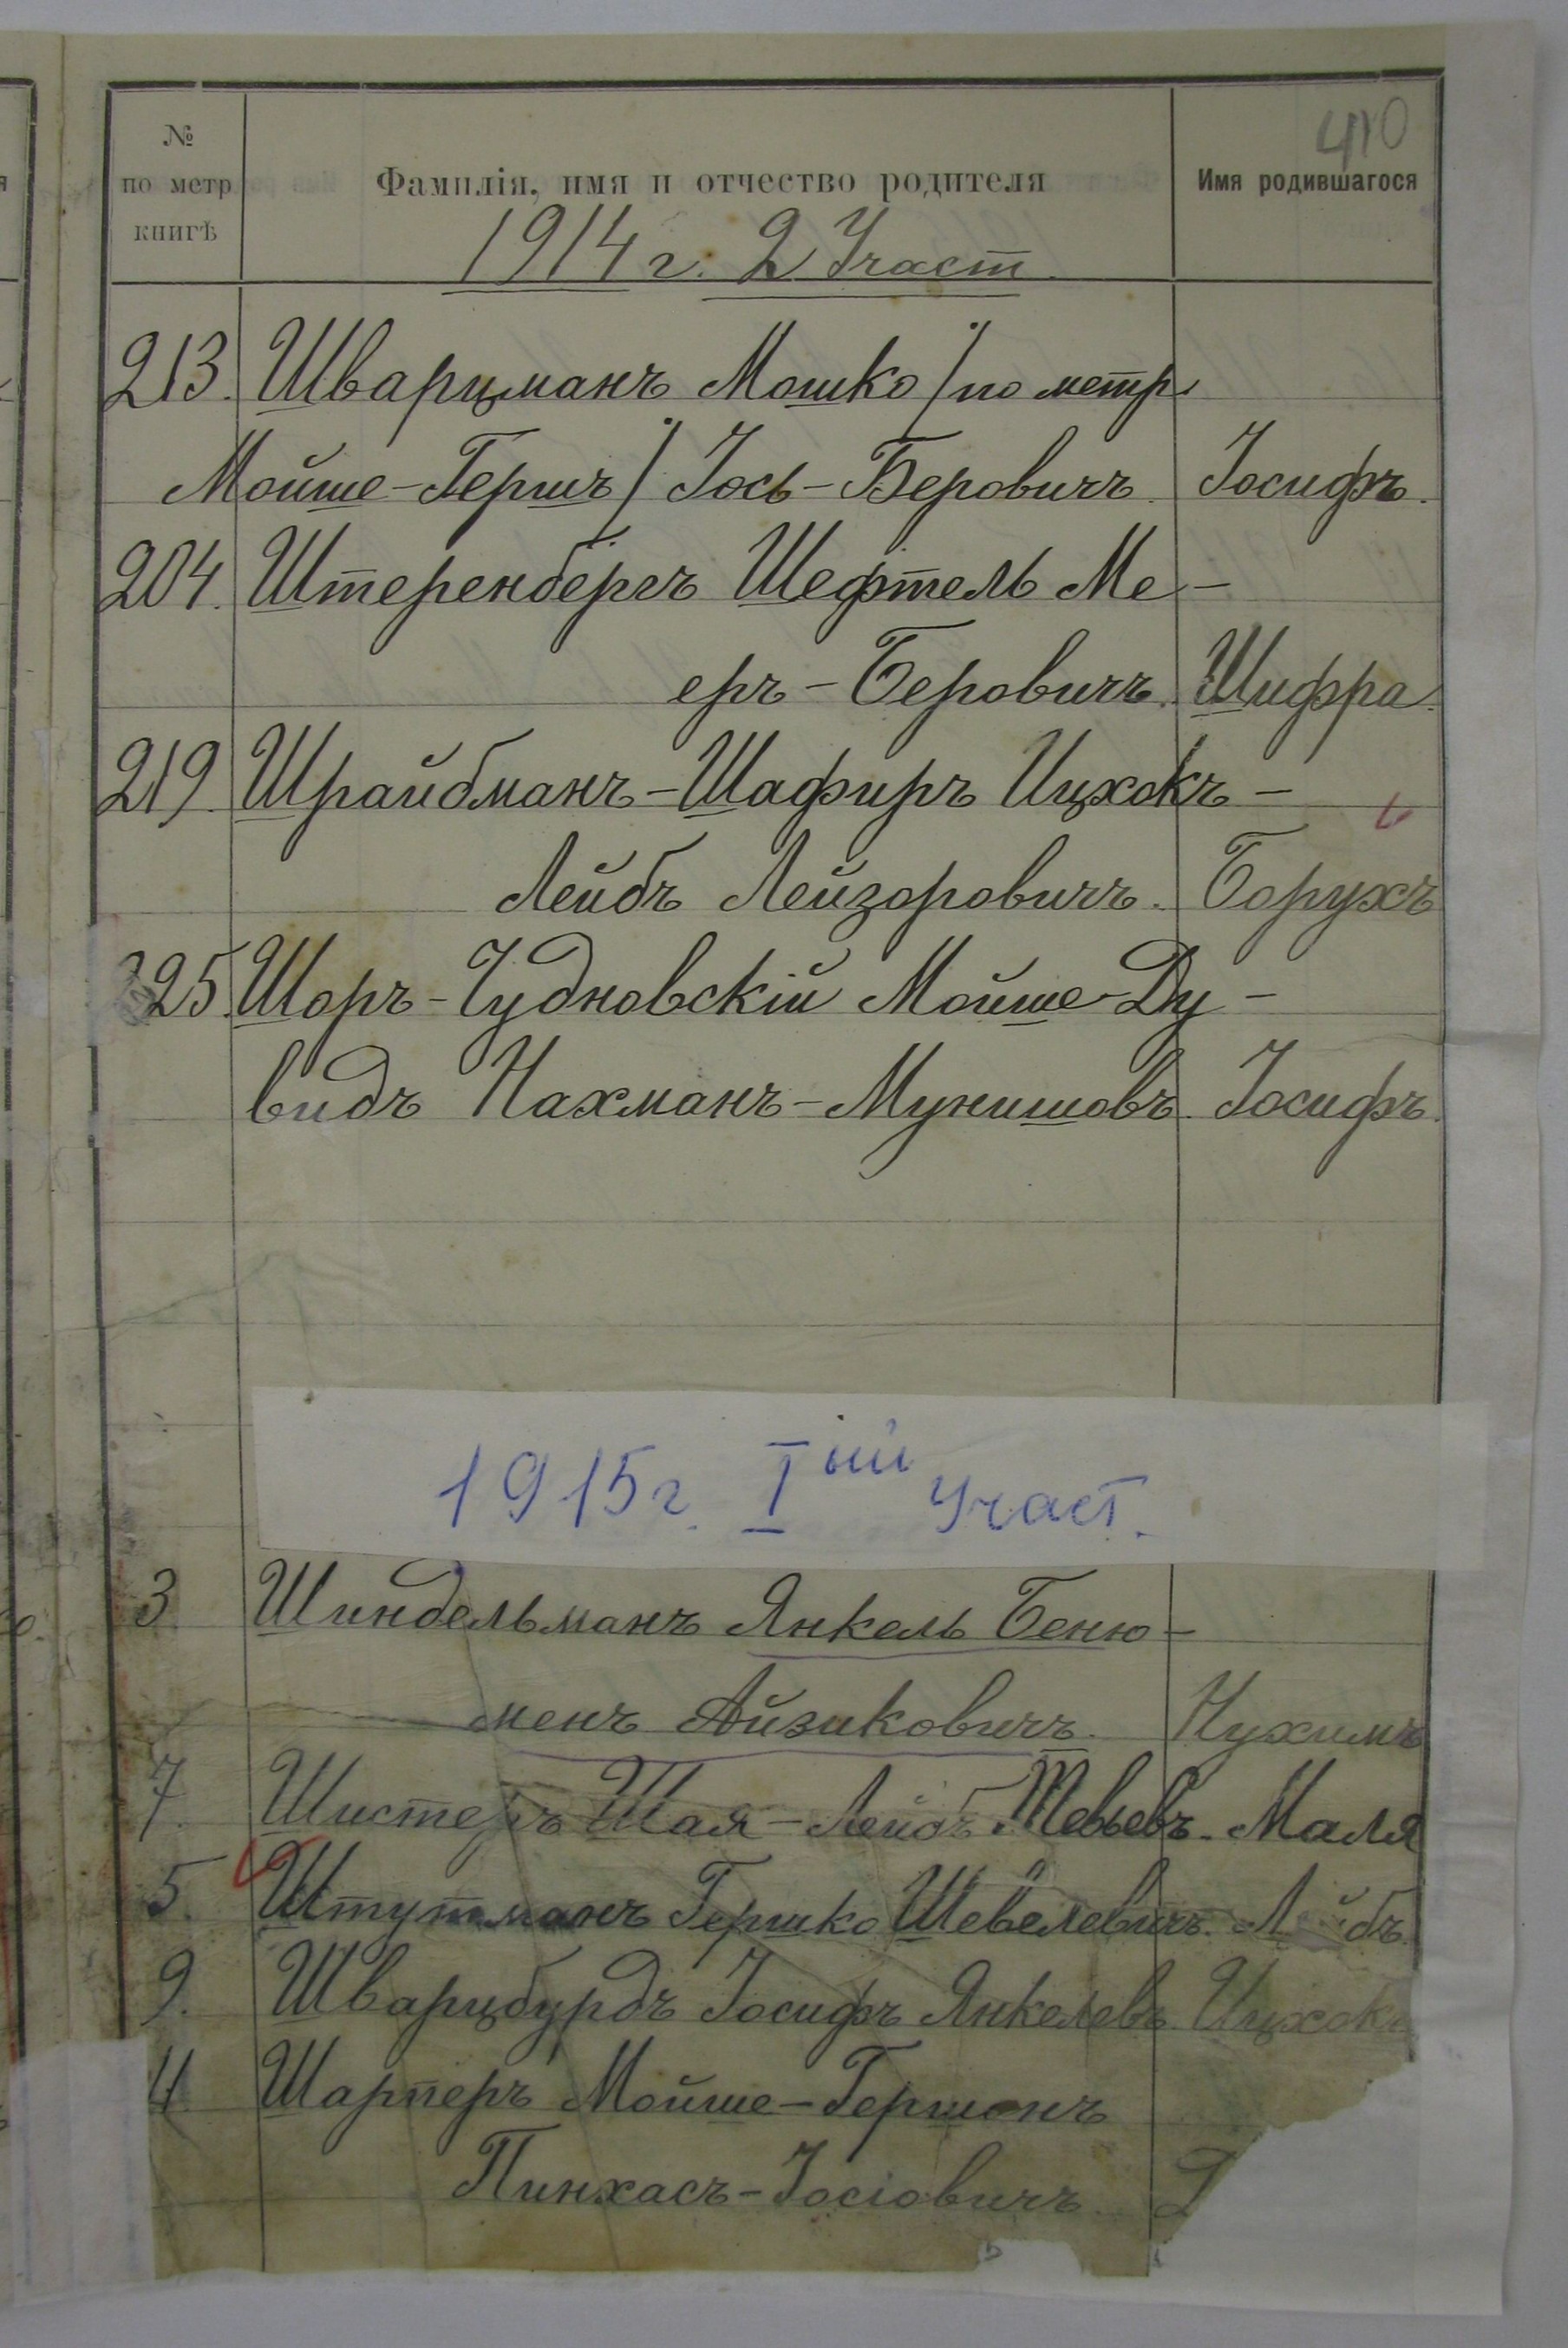 410
№ по метр книгѣ
Фамилія, имя и отчество родителя
Имя родившагося
1914 г. 2 Участ
213. Шварцманъ Мошко /по метр
Мойше-Гершъ/ Іось-Беровичъ. Іосифъ.
204. Штеренбергъ Шефтель Ме-
еръ-Беровичъ. Шифра.
219. Шрайбманъ-Шафиръ Ицхокъ-
Лейбъ Лейзоровичъ. Борухъ
225. Шоръ-Чудновскій Мойше-Ду-
видъ Нахманъ-Мунишовъ. Іосифъ.
1915 г. Iый Участ.
3 Шиндельманъ Янкель Беню-
менъ Айзиковичъ. Нухимъ
7. Шистеръ Шая-Лейбъ Шевьевъ. Маля
5. Штутманъ Гершко Шевелевичъ. Лейбъ.
9. Шварцбурдъ Іосифъ Янкелевъ. Ицхокъ
Шарперъ Мойше-Гершонъ
Пинхасъ-Іосіовичъ.